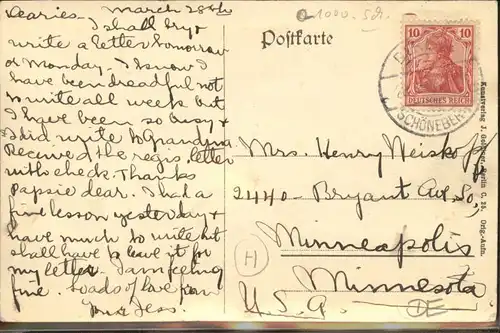 Dearies – March 28th
I shall try &
write a letter tomorrow
or Monday – I know I
have been dreadful not
to write all week but
I have been so busy &
I did write to Grandma
Received the regis. letter
with check. Thanks
Papsie dear. I had a
fine lesson yesterday &
have much to write but
shall have to leave it for
my letter – I am feeling
fine. Loads of love from
Jess.
1000.
Postkarte
10 10
DEUTSCHES REICH
SCHÖNEBERG
Mrs. Henry Weiskopf
2440 – Bryant Av. So;
Minneapolis
Minnesota
U. S. A.
H
DE
Kunstverlag J. Berlin C. 24. Orig.-Aufn.